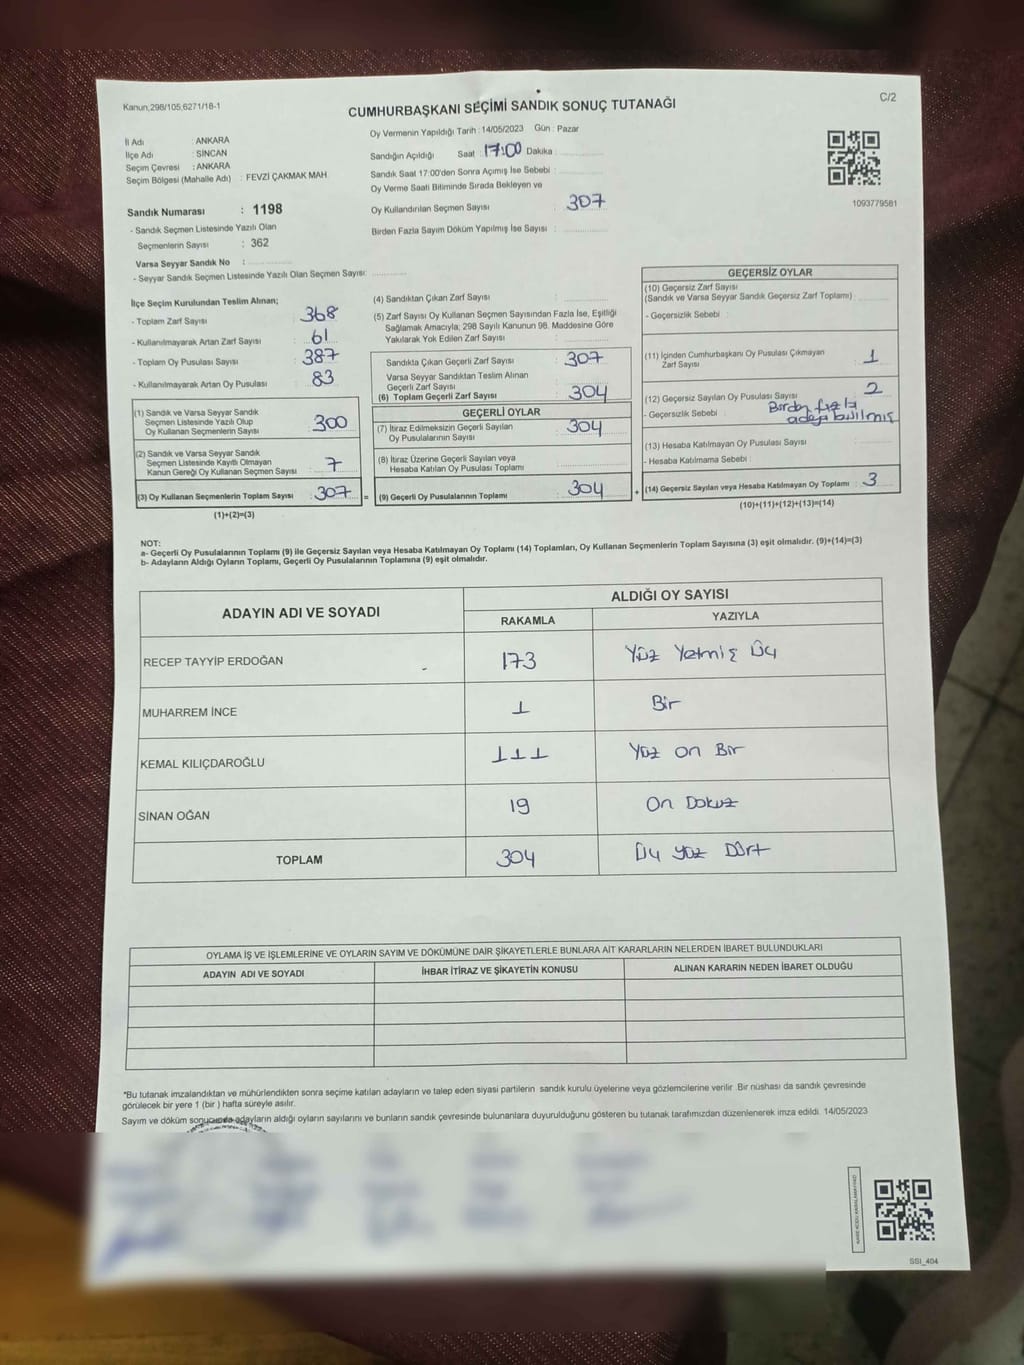 Kanun,298/105,6271/18-1
C/2
CUMHURBAŞKANI SEÇİMİ SANDIK SONUÇ TUTANAĞI
Oy Vermenin Yapıldığı Tarih : 14/05/2023 Gün : Pazar
İl Adı : ANKARA
İlçe Adı : SİNCAN
Seçim Çevresi : ANKARA
Seçim Bölgesi (Mahalle Adı) : FEVZİ ÇAKMAK MAH.
Sandığın Açıldığı Saat : 17:00 Dakika :
Sandık Saat 17:00'den Sonra Açımış İse Sebebi :
Oy Verme Saati Bitiminde Sırada Bekleyen ve
Oy Kullandırılan Seçmen Sayısı : 307
Birden Fazla Sayım Döküm Yapılmış İse Sayısı :
1093779581
Sandık Numarası : 1198
- Sandık Seçmen Listesinde Yazılı Olan
Seçmenlerin Sayısı : 362
Varsa Seyyar Sandık No :
- Seyyar Sandık Seçmen Listesinde Yazılı Olan Seçmen Sayısı:
İlçe Seçim Kurulundan Teslim Alınan;
- Toplam Zarf Sayısı : 368
- Kullanılmayarak Artan Zarf Sayısı : 61
- Toplam Oy Pusulası Sayısı : 387
- Kullanılmayarak Artan Oy Pusulası : 83
(1) Sandık ve Varsa Seyyar Sandık
Seçmen Listesinde Yazılı Olup
Oy Kullanan Seçmenlerin Sayısı : 300
(2) Sandık ve Varsa Seyyar Sandık
Seçmen Listesinde Kayıtlı Olmayan
Kanun Gereği Oy Kullanan Seçmen Sayısı : 7
(3) Oy Kullanan Seçmenlerin Toplam Sayısı : 307 =
(1)+(2)=(3)
(4) Sandıktan Çıkan Zarf Sayısı :
(5) Zarf Sayısı Oy Kullanan Seçmen Sayısından Fazla İse, Eşitliği
Sağlamak Amacıyla; 298 Sayılı Kanunun 98. Maddesine Göre
Yakılarak Yok Edilen Zarf Sayısı :
Sandıkta Çıkan Geçerli Zarf Sayısı : 307
Varsa Seyyar Sandıktan Teslim Alınan
Geçerli Zarf Sayısı :
(6) Toplam Geçerli Zarf Sayısı : 304
GEÇERLİ OYLAR
(7) İtiraz Edilmeksizin Geçerli Sayılan
Oy Pusulalarının Sayısı : 304
(8) İtiraz Üzerine Geçerli Sayılan veya
Hesaba Katılan Oy Pusulası Toplamı :
(9) Geçerli Oy Pusulalarının Toplamı : 304 +
GEÇERSİZ OYLAR
(10) Geçersiz Zarf Sayısı
(Sandık ve Varsa Seyyar Sandık Geçersiz Zarf Toplamı) :
- Geçersizlik Sebebi :
(11) İçinden Cumhurbaşkanı Oy Pusulası Çıkmayan
Zarf Sayısı : 1
(12) Geçersiz Sayılan Oy Pusulası Sayısı : 2
- Geçersizlik Sebebi : Birden fazla
adaya
(13) Hesaba Katılmayan Oy Pusulası Sayısı :
- Hesaba Katılmama Sebebi :
(14) Geçersiz Sayılan veya Hesaba Katılmayan Oy Toplamı : 3
(10)+(11)+(12)+(13)=(14)
NOT:
a- Geçerli Oy Pusulalarının Toplamı (9) ile Geçersiz Sayılan veya Hesaba Katılmayan Oy Toplamı (14) Toplamları, Oy Kullanan Seçmenlerin Toplam Sayısına (3) eşit olmalıdır. (9)+(14)=(3)
b- Adayların Aldığı Oyların Toplamı, Geçerli Oy Pusulalarının Toplamına (9) eşit olmalıdır.
ADAYIN ADI VE SOYADI
ALDIĞI OY SAYISI
RAKAMLA YAZIYLA
RECEP TAYYİP ERDOĞAN 173 Yüz Yetmiş Üç
MUHARREM İNCE 1 Bir
KEMAL KILIÇDAROĞLU 111 Yüz on Bir
SİNAN OĞAN 19 On Dokuz
TOPLAM 304 Üç yüz Dört
OYLAMA İŞ VE İŞLEMLERİNE VE OYLARIN SAYIM VE DÖKÜMÜNE DAİR ŞİKAYETLERLE BUNLARA AİT KARARLARIN NELERDEN İBARET BULUNDUKLARI
ADAYIN ADI VE SOYADI İHBAR İTİRAZ VE ŞİKAYETİN KONUSU ALINAN KARARIN NEDEN İBARET OLDUĞU
*Bu tutanak imzalandıktan ve mühürlendikten sonra seçime katılan adayların ve talep eden siyasi partilerin sandık kurulu üyelerine veya gözlemcilerine verilir. Bir nüshası da sandık çevresinde
görülecek bir yere 1 (bir ) hafta süreyle asılır.
Sayım ve döküm sonucunda adayların aldığı oyların sayılarını ve bunların sandık çevresinde bulunanlara duyurulduğunu gösteren bu tutanak tarafımızdan düzenlenerek imza edildi. 14/05/2023
SSI_404